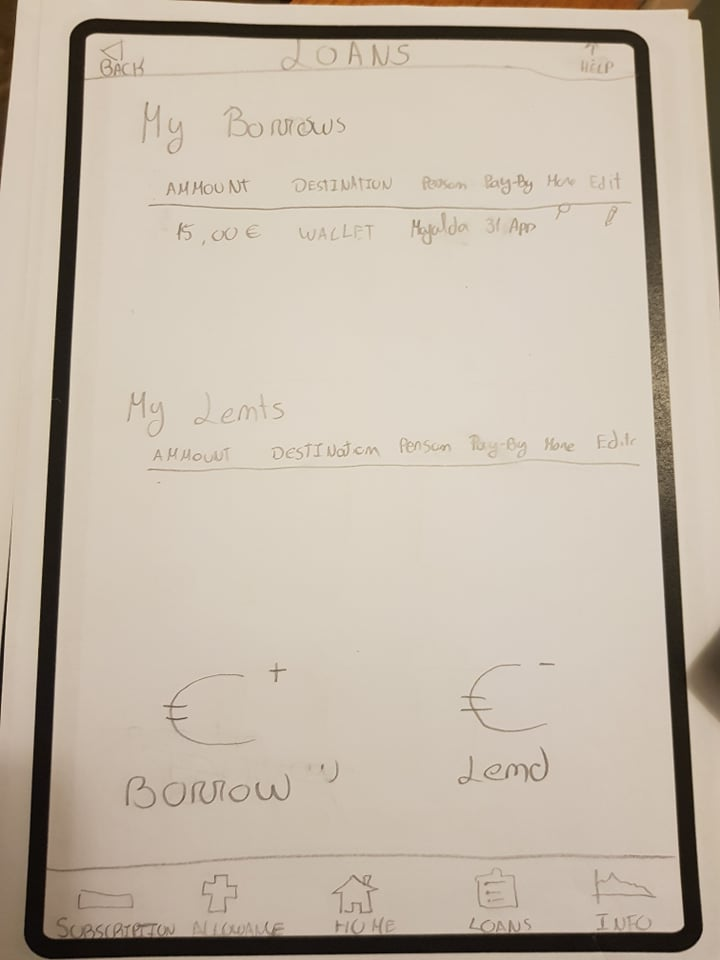 BACK LOANS HELP
My Borrows
AMMOUNT DESTINATION Person Pay-By More Edit
15,00 € WALLET Mafalda 31 Apr
My Lents
AMMOUNT DESTINation Person Pay-By More Edit
€ + € -
BORROW Lend
SUBSCRIPTION ALLOWANCE HOME LOANS INFO